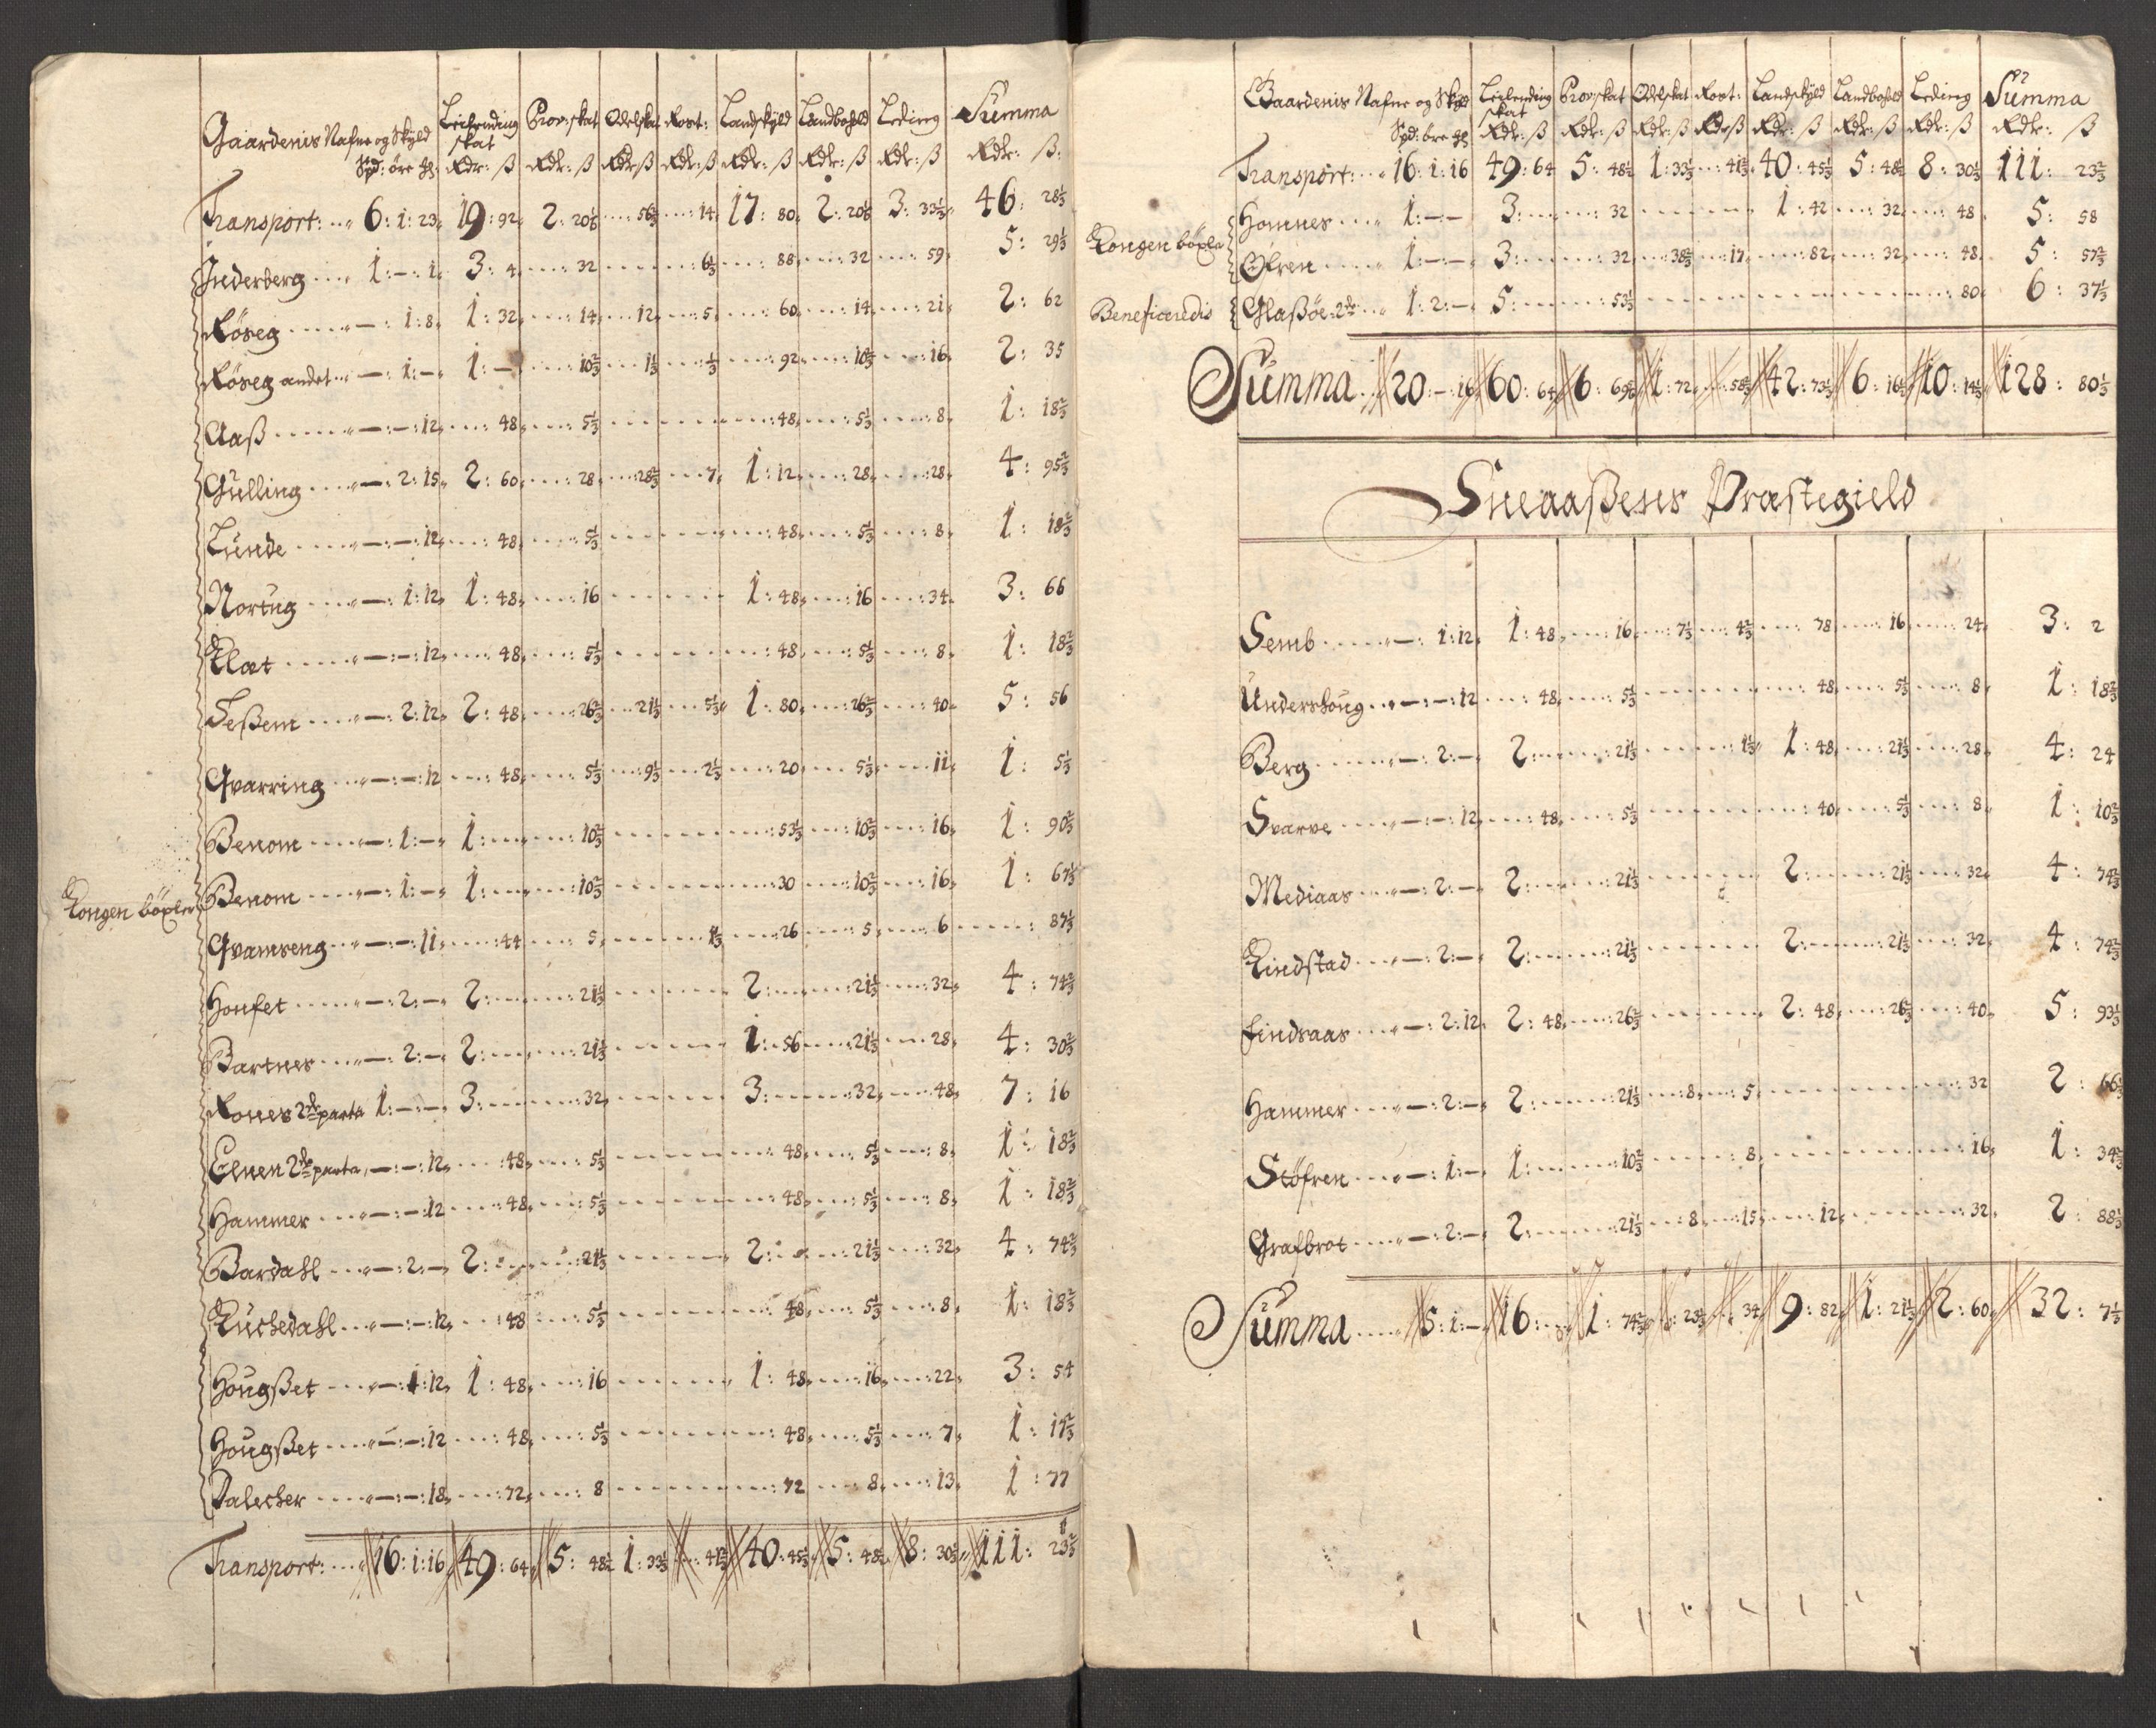 Gaardenis Nafne og Skyld Leilending skat Prov: skat Odelskat Rost: Landskyld Landbohold Leding Summa
Spd: öre ₰: Rdr: ß Rdr: ß Rdr ß Rdr: ß Rdr: ß Rdr: ß Rdr: ß Rdr: ß:
Transport: 6: 1: 23 19: 92 2: 20⅙ 56⅔ 14 17: 80 2: 20⅙ 3: 33⅓ 46: 28⅓
Inderberg 1: —: 1 3: 4 32 6⅓ 88 32 59 5: 29⅓
Röseg —: 1: 8 1: 32 14 12 5 60 14 21 2: 62
Röseg andet —: 1: — 1: — 10⅔ 1⅓ ⅓ 92 10⅔ 16 2: 35
Aaß —: —: 12 48 5⅓ 48 5⅓ 8 1: 18⅔
Gulling —: 2: 15 2: 60 28 28⅔ 7 1: 12 28 28 4: 95⅔
Lunde —: —: 12 48 5⅓ 48 5⅓ 8 1: 18⅔
Nortug —: 1: 12 1: 48 16 1: 48 16 34 3: 66
Klæt —: —: 12 48 5⅓ 48 5⅓ 8 1: 18⅔
Seßem —: 2: 12 2: 48 26⅔ 21⅓ 5⅓ 1: 80 26⅔ 40 5: 56
Qvarring —: —: 12 48 5⅓ 9⅓ 2⅓ 20 5⅓ 11 1: 5⅓
Benom —: 1: — 1: 10⅔ 53⅓ 10⅔ 16 1: 90⅔
Kongen böxler
Benom —: 1: — 1: 10⅔ 30 10⅔ 16 1: 67⅓
Qvamseng —: —: 11 44 5 1⅓ 26 5 6 87⅓
Houfet —: 2: — 2: 21⅓ 2: 21⅓ 32 4: 74⅔
Bartnes —: 2: — 2: 21⅓ 1: 56 21⅓ 28 4: 30⅔
Rones 2de parta 1: —: — 3: 32 3: 32 48 7: 16
Elnen 2de parta —: —: 12 48 5⅓ 48 5⅓ 8 1: 18⅔
Hammer —: —: 12 48 5⅓ 48 5⅓ 8 1: 18⅔
Bardahl —: 2: — 2: 21⅓ 2: 21⅓ 32 4: 74⅔
Kuchedahl —: —: 12 48 5⅓ 48 5⅓ 8 1: 18⅔
Hougßet —: 1: 12 1: 48 16 1: 48 16 22 3: 54
Hougßet —: —: 12 48 5⅓ 48 5⅓ 7 1: 17⅔
Dalecher —: —: 18 72 8 72 8 13 1: 77
Transport: 16: 1: 16 49: 64 5: 48½ 1: 33⅓ 41⅔ 40: 45⅓ 5: 48½ 8: 30⅓ 111: 23⅔
Gaardenis Nafne og Skyld Leilending skat Prov: skat Odelskat Rost: Landskyld Landbohold Leding Summa
Spd: öre ₰ Rdr: ß Rdr: ß Rdr: ß Rdr ß Rdr: ß Rdr: ß Rdr: ß Rdr: ß
Transport: 16: 1: 16 49: 64 5: 48½ 1: 33⅓ 41⅔ 40: 45⅓ 5: 48½ 8: 30⅓ 111: 23⅔
Homnes 1: —: — 3: 32 1: 42 32 48 5: 58
Kongen böxler
Öfren 1: —: — 3: 32 38⅔ 17 82 32 48 5: 57⅔
Beneficendis Glaßöe: 2de 1: 2: — 5: 53⅓ 80 6: 37⅓
Summa 20: —: 16 60: 64 6: 69⅚ 1: 72 58⅔ 42: 73⅓ 6: 16½ 10: 14⅓ 128: 80⅓
Sneaaßens Præstegield
Semb —: 1: 12 1: 48 16 7⅓ 4⅔ 78 16 24 3: 2
Undershoug —: —: 12 48 5⅓ 48 5⅓ 8 1: 18⅔
Berg —: 2: — 2: 21⅓ 1⅓ 1: 48 21⅓ 28 4: 24
Svarve —: —: 12 48 5⅓ 40 5⅓ 8 1: 10⅔
Mediaas —: 2: — 2: 21⅓ 2: 21⅓ 32 4: 74⅔
Kindstad —: 2: — 2: 21⅓ 2: 21⅓ 32 4: 74⅔
Findsaas —: 2: 12 2: 48 26⅔ 2: 48 26⅔ 40 5: 93⅓
Hammer —: 2: — 2: 21⅓ 8 5 32 2: 66⅓
Stöfren —: 1: — 1: 10⅔ 8 16 1: 34⅔
Grafbrot —: 2: — 2: 21⅓ 8 15 12 32 2: 88⅓
Summa 5: 1: — 16: 1: 74⅔ 23⅓ 34 9: 82 1: 21⅓ 2: 60 32: 7⅓